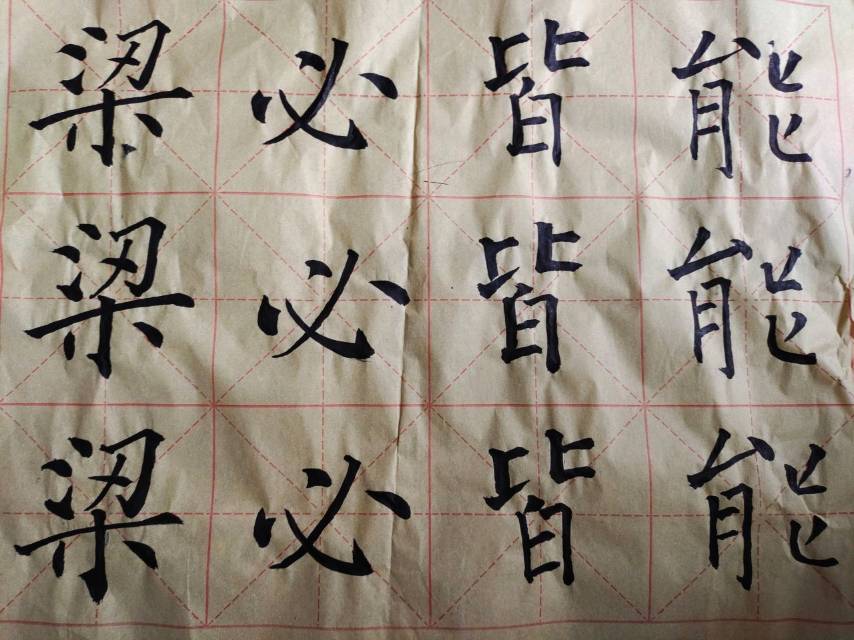 梁必皆能
梁必皆能
梁必皆能